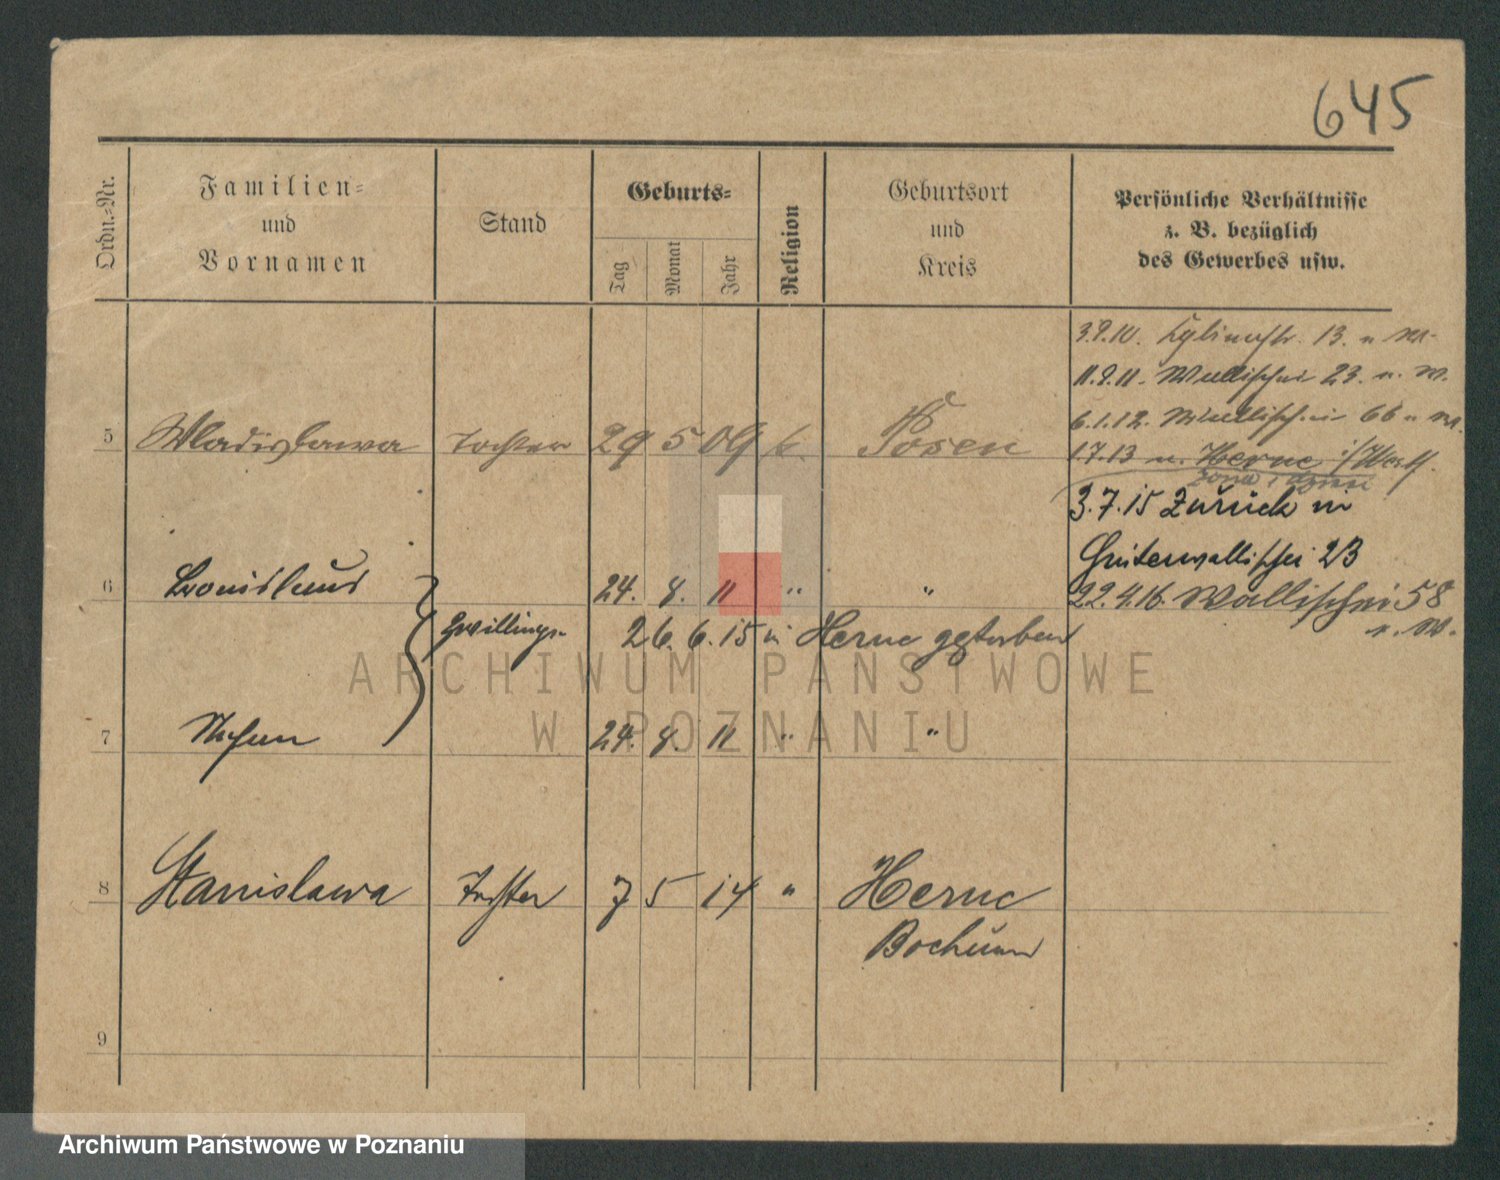 645
Ordn.-Nr.
Familien-
und
Vornamen
Stand
Geburts-
Tag
Monat
Jahr
Religion
Geburtsort
und
Kreis
Persönliche Verhältnisse
z. B. bezüglich
des Gewerbes usw.
3.9.10. 13. u
11.9.11. Wallischei 23. u. W.
6.1.12. Wallischei 66 u
5 Wladislawa Tochter 29 5 09 k. Posen
1.7.13 n. Herne i/Westf.
żona i dzieci
3.7.15 Zurück in
Hinterwallischei 23
6 Bronislaus 24. 8. 11 " "
22.4.16. Wallischei 58
u. W.
Zwillinge
26. 6. 15 in Herne gestorben
7 Stefan 24. 8. 11 " "
8 Stanislawa Tochter 7 5 14 " Herne
Bochum
9
ARCHIWUM PAŃSTWOWE
W POZNANIU
Archiwum Państwowe w Poznaniu